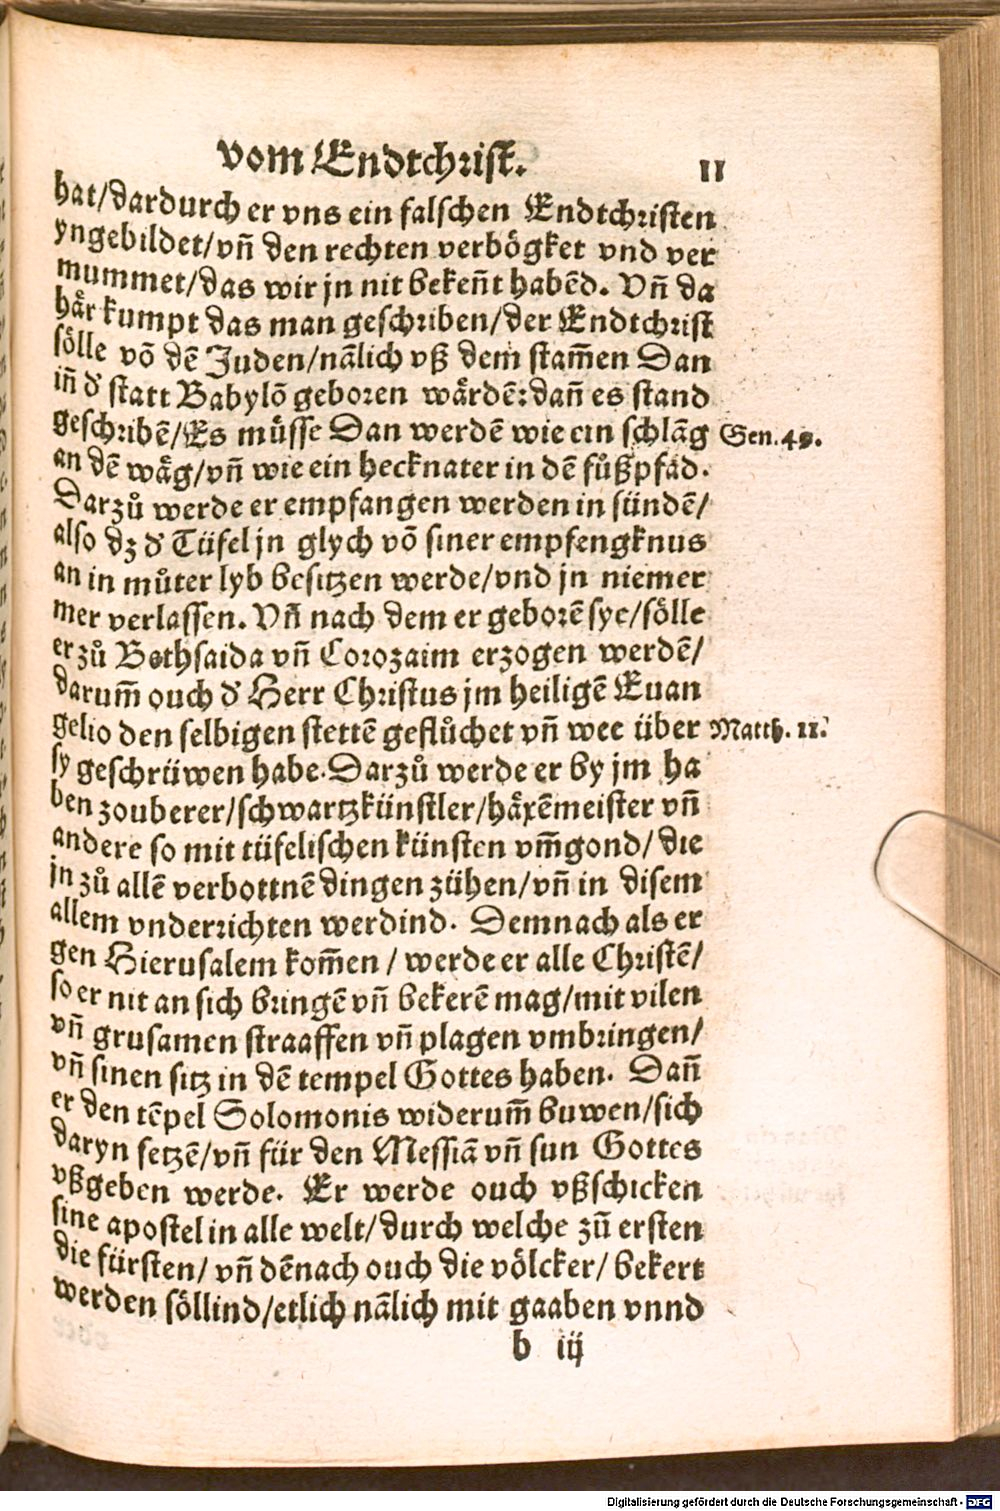 vom Endtchrist. 11
hat/dardurch er vns ein falschen Endtchristen
yngebildet/vn̄ den rechten verbögket vnd ver
mummet/das wir jn nit bekeñt habēd. Vn̄ da
här kumpt das man geschriben/der Endtchrist
sölle vō dē Juden/nālich vß dem stam̄en Dan
in̄ d' statt Babylō geboren wärdē: dan̄ es stand
geschribē/Es müsse Dan werdē wie ein schlāg Gen. 49.
an dē wäg/vn̄ wie ein hecknater in dē fůßpfad.
Darzů werde er empfangen werden in sündē/
also dz d' Tüfel jn glych vō siner empfengknus
an in můter lyb besitzen werde/vnd jn niemer
mer verlassen. Vn̄ nach dem er geborē sye/sölle
er zů Bethsaida vn̄ Corozaim erzogen werdē/
darum̄ ouch d' Herr Christus jm heiligē Euan
gelio den selbigen stettē geflůchet vn̄ wee über Matth. 11.
sy geschrüwen habe. Darzů werde er by jm ha
ben zouberer/schwartzkünstler/häxēmeister vn̄
andere so mit tüfelischen künsten vm̄gond/die
jn zů allē verbottnē dingen zühen/vn̄ in disem
allem vnderrichten werdind. Demnach als er
gen Hierusalem kom̄en/werde er alle Christē/
so er nit an sich bringē vn̄ bekerē mag/mit vilen
vn̄ grusamen straaffen vn̄ plagen vmbringen/
vn̄ sinen sitz in dē tempel Gottes haben. Dan̄
er den tēpel Solomonis widerum̄ buwen/sich
daryn setzē/vn̄ für den Messiā vn̄ sun Gottes
vßgeben werde. Er werde ouch vßschicken
sine apostel in alle welt/durch welche zū ersten
die fürsten/vn̄ dēnach ouch die völcker/bekert
werden söllind/etlich nālich mit gaaben vnnd
b iij
Digitalisierung gefördert durch die Deutsche Forschungsgemeinschaft - DFG